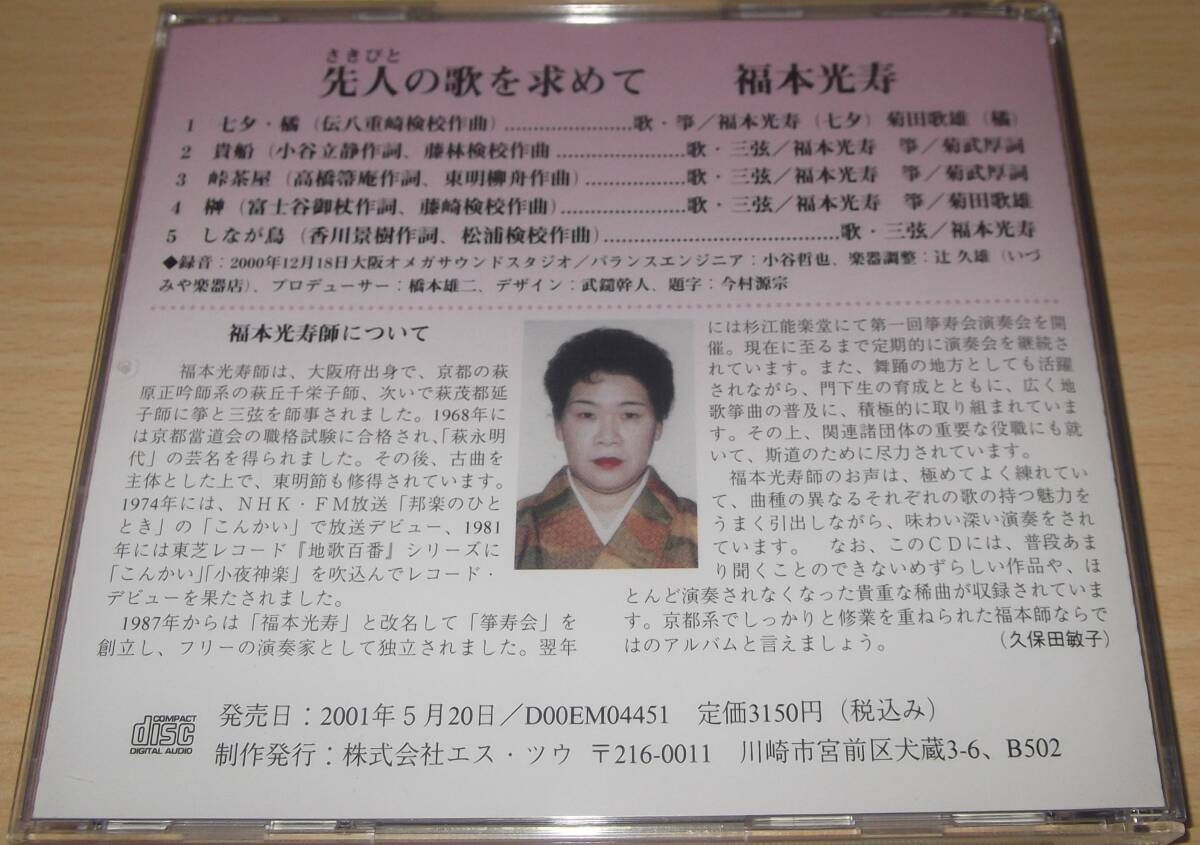 さきびと
先人の歌を求めて　福本光寿
1 七夕・橘（伝八重崎検校作曲）........................歌・箏／福本光寿（七夕）菊田歌雄（橘）
2 貴船（小谷立静作詞、藤林検校作曲........................歌・三弦／福本光寿　箏／菊武厚詞
3 峠茶屋（高橋箒庵作詞、東明柳舟作曲）........................歌・三弦／福本光寿　箏／菊武厚詞
4 榊（富士谷御杖作詞、藤崎検校作曲）........................歌・三弦／福本光寿　箏／菊田歌雄
5 しなが鳥（香川景樹作詞、松浦検校作曲）........................歌・三弦／福本光寿
◆録音：2000年12月18日大阪オメガサウンドスタジオ／バランスエンジニア：小谷哲也、楽器調整：辻 久雄（いづ
みや楽器店）、プロデューサー：橋本雄二、デザイン：武鑓幹人、題字：今村源宗
福本光寿師について
福本光寿師は、大阪府出身で、京都の萩
原正吟師系の萩丘千栄子師、次いで萩茂都延
子師に箏と三弦を師事されました。1968年に
は京都當道会の職格試験に合格され、「萩永明
代」の芸名を得られました。その後、古曲を
主体とした上で、東明節も修得されています。
1974年には、NHK・FM放送「邦楽のひと
とき」の「こんかい」で放送デビュー、1981
年には東芝レコード『地歌百番』シリーズに
「こんかい」「小夜神楽」を吹込んでレコード・
デビューを果たされました。
1987年からは「福本光寿」と改名して「箏寿会」を
創立し、フリーの演奏家として独立されました。翌年
には杉江能楽堂にて第一回箏寿会演奏会を開
催。現在に至るまで定期的に演奏会を継続さ
れています。また、舞踊の地方としても活躍
されながら、門下生の育成とともに、広く地
歌箏曲の普及に、積極的に取り組まれていま
す。その上、関連諸団体の重要な役職にも就
いて、斯道のために尽力されています。
福本光寿師のお声は、極めてよく練れてい
て、曲種の異なるそれぞれの歌の持つ魅力を
うまく引出しながら、味わい深い演奏をされ
ています。　なお、このCDには、普段あま
り聞くことのできないめずらしい作品や、ほ
とんど演奏されなくなった貴重な稀曲が収録されていま
す。京都系でしっかりと修業を重ねられた福本師ならで
はのアルバムと言えましょう。　（久保田敏子）
COMPACT
disc
DIGITAL AUDIO
発売日：2001年５月20日／D00EM04451　定価3150円（税込み）
制作発行：株式会社エス・ツウ　〒216-0011　川崎市宮前区犬蔵3-6、B502